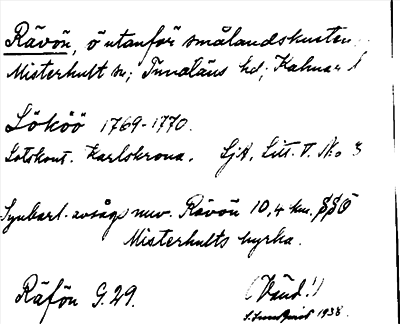 Rävön, ö utanför smålandskusten,
Misterhult sn; Tunaläns hd; Kalmar l
Lökö 1769-1770.
Lotskont. Karlskrona. SjA, Litt. V. No 3
Synbarl. avsågs nuv. Rävön 10,4 km. SSO
Misterhults kyrka.
Räfön G. 29. (Vänd!)
S. Lundqvist 1938.